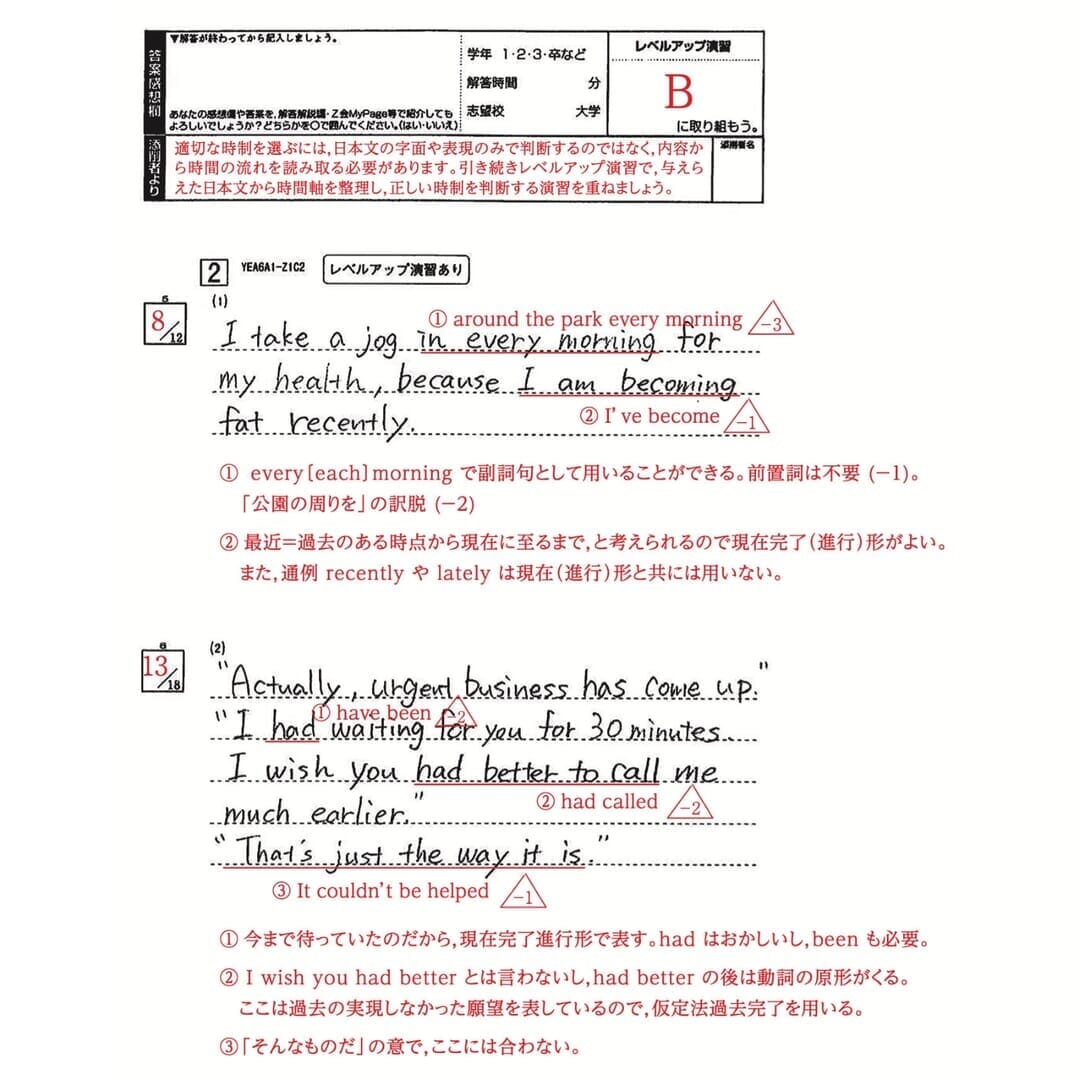 ▼解答が終わってから記入しましょう。
答案感想欄
学年 1・2・3・卒など
解答時間 分
志望校 大学
あなたの感想欄や答案を,解答解説編・Z会MyPage等で紹介しても
よろしいでしょうか?どちらかを○で囲んでください。(はい・いいえ)
レベルアップ演習
B
に取り組もう。
添削者より
適切な時制を選ぶには,日本文の字面や表現のみで判断するのではなく,内容か
ら時間の流れを読み取る必要があります。引き続きレベルアップ演習で,与えら
えた日本文から時間軸を整理し,正しい時制を判断する演習を重ねましょう。
添削者名
2 YEA6A1-Z1C2 レベルアップ演習あり
5
8/12
(1)
① around the park every morning −3
I take a jog in every morning for
my health, because I am becoming
② I've become −1
fat recently.
① every[each]morning で副詞句として用いることができる。前置詞は不要 (−1)。
「公園の周りを」の訳脱 (−2)
② 最近=過去のある時点から現在に至るまで,と考えられるので現在完了(進行)形がよい。
また,通例 recently や lately は現在(進行)形と共には用いない。
6
13/18
(2)
"Actually, urgent business has come up."
① have been −2
"I had waiting for you for 30 minutes.
I wish you had better to call me
② had called −2
much earlier."
"That's just the way it is."
③ It couldn't be helped −1
① 今まで待っていたのだから,現在完了進行形で表す。had はおかしいし,been も必要。
② I wish you had better とは言わないし,had better の後は動詞の原形がくる。
ここは過去の実現しなかった願望を表しているので,仮定法過去完了を用いる。
③「そんなものだ」の意で,ここには合わない。